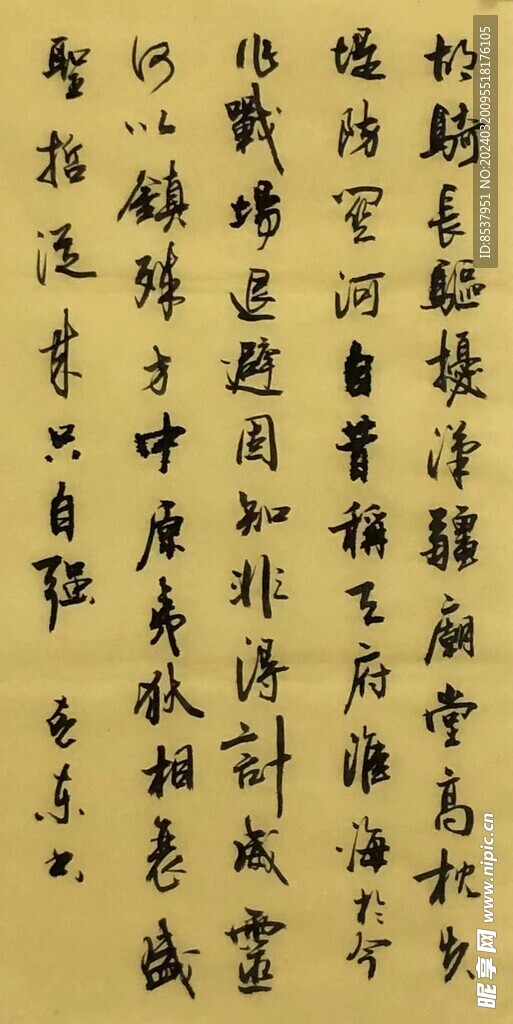 胡騎長驅擾漢疆廟堂高枕失
堤防關河自昔稱天府淮海於今
作戰場退避固知非得計威靈
何以鎮殊方中原夷狄相衰盛
聖哲從來只自強
東書
ID:8537951 NO:20240320095518176105
昵享网 www.nipic.cn